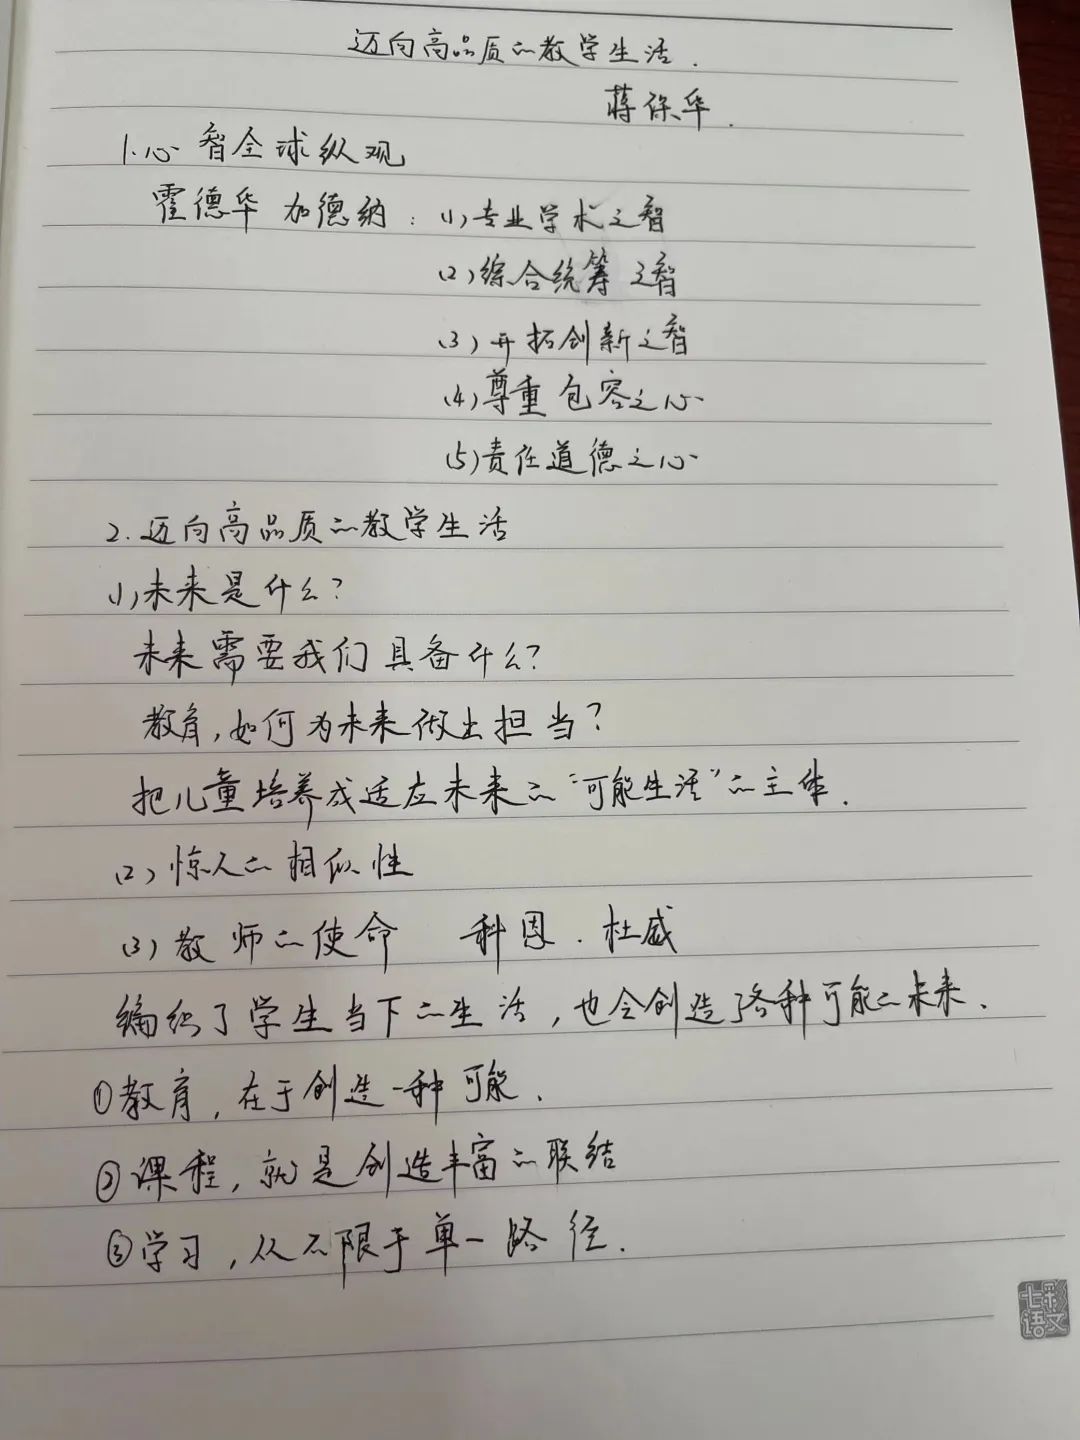 迈向高品质的教学生活.
蒋保华.
1.心智全球纵观
霍德华 加德纳：(1)专业学术之智
(2)综合统筹之智
(3)开拓创新之智
(4)尊重包容之心
(5)责任道德之心
2.迈向高品质的教学生活
(1)未来是什么？
未来需要我们具备什么？
教育，如何为未来做出担当？
把儿童培养成适应未来的“可能生活”的主体.
(2)惊人的相似性
(3)教师的使命 科恩.杜威
编织了学生当下的生活，也会创造了各种可能的未来.
①教育，在于创造一种可能.
②课程，就是创造丰富的联结
③学习，从不限于单一路径.
七彩语文